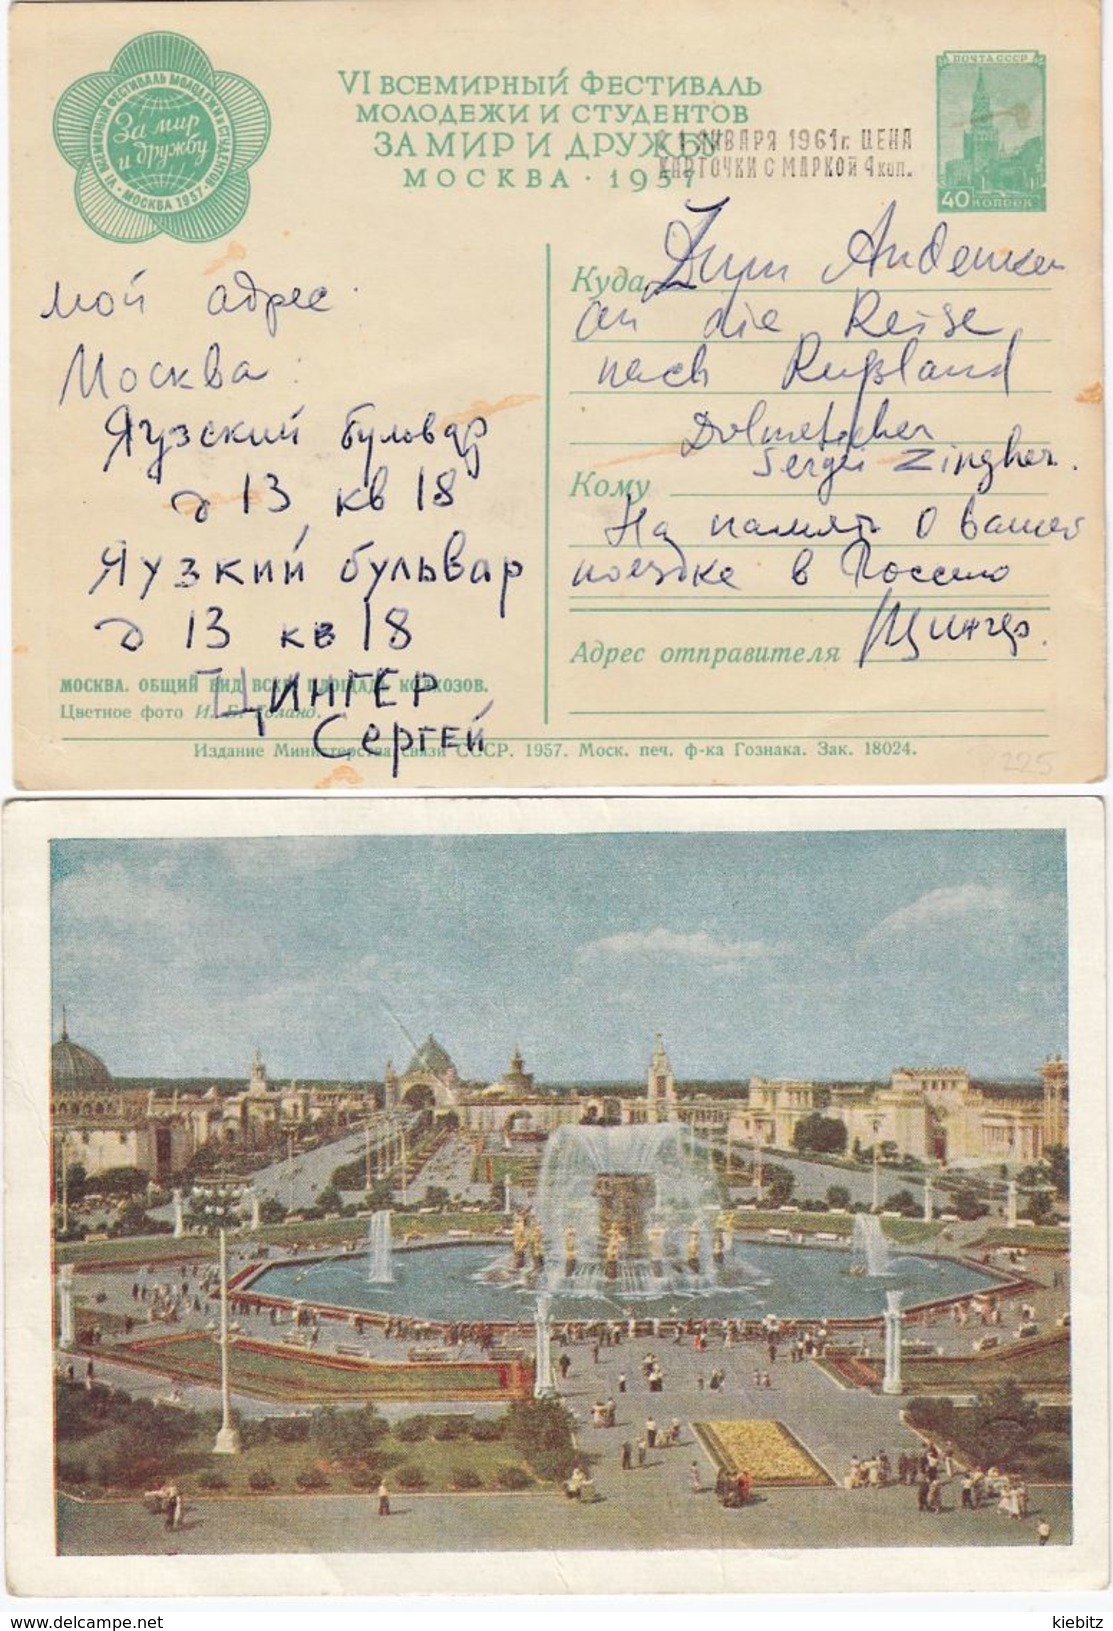 VI ВСЕМИРНЫЙ ФЕСТИВАЛЬ
МОЛОДЕЖИ И СТУДЕНТОВ
ЗА МИР И ДРУЖБУ
МОСКВА · 1957
VI ВСЕМИРНЫЙ ФЕСТИВАЛЬ МОЛОДЕЖИ И СТУДЕНТОВ
· МОСКВА 1957 ·
За мир
и дружбу
ПОЧТА СССР
40 КОПЕЕК
С 1 ЯНВАРЯ 1961г. ЦЕНА
КАРТОЧКИ С МАРКОЙ 4 коп.
мой адрес:
Москва:
Яузский бульвар
д 13, кв 18
Яузкий бульвар
д 13 кв 18
ЦИНГЕР
Сергей
МОСКВА. ОБЩИЙ ВИД ВСХВ. ПЛОЩАДЬ КОЛХОЗОВ.
Цветное фото И. Б. Голанд.
Куда Zum Andenken
an die Reise
nach Rußland
Dolmetscher
Sergei Zingher.
Кому
На память о вашей
поездке в Россию
Цингер.
Адрес отправителя
Издание Министерства связи СССР. 1957. Моск. печ. ф-ка Гознака. Зак. 18024.
225
www.delcampe.net
kiebitz